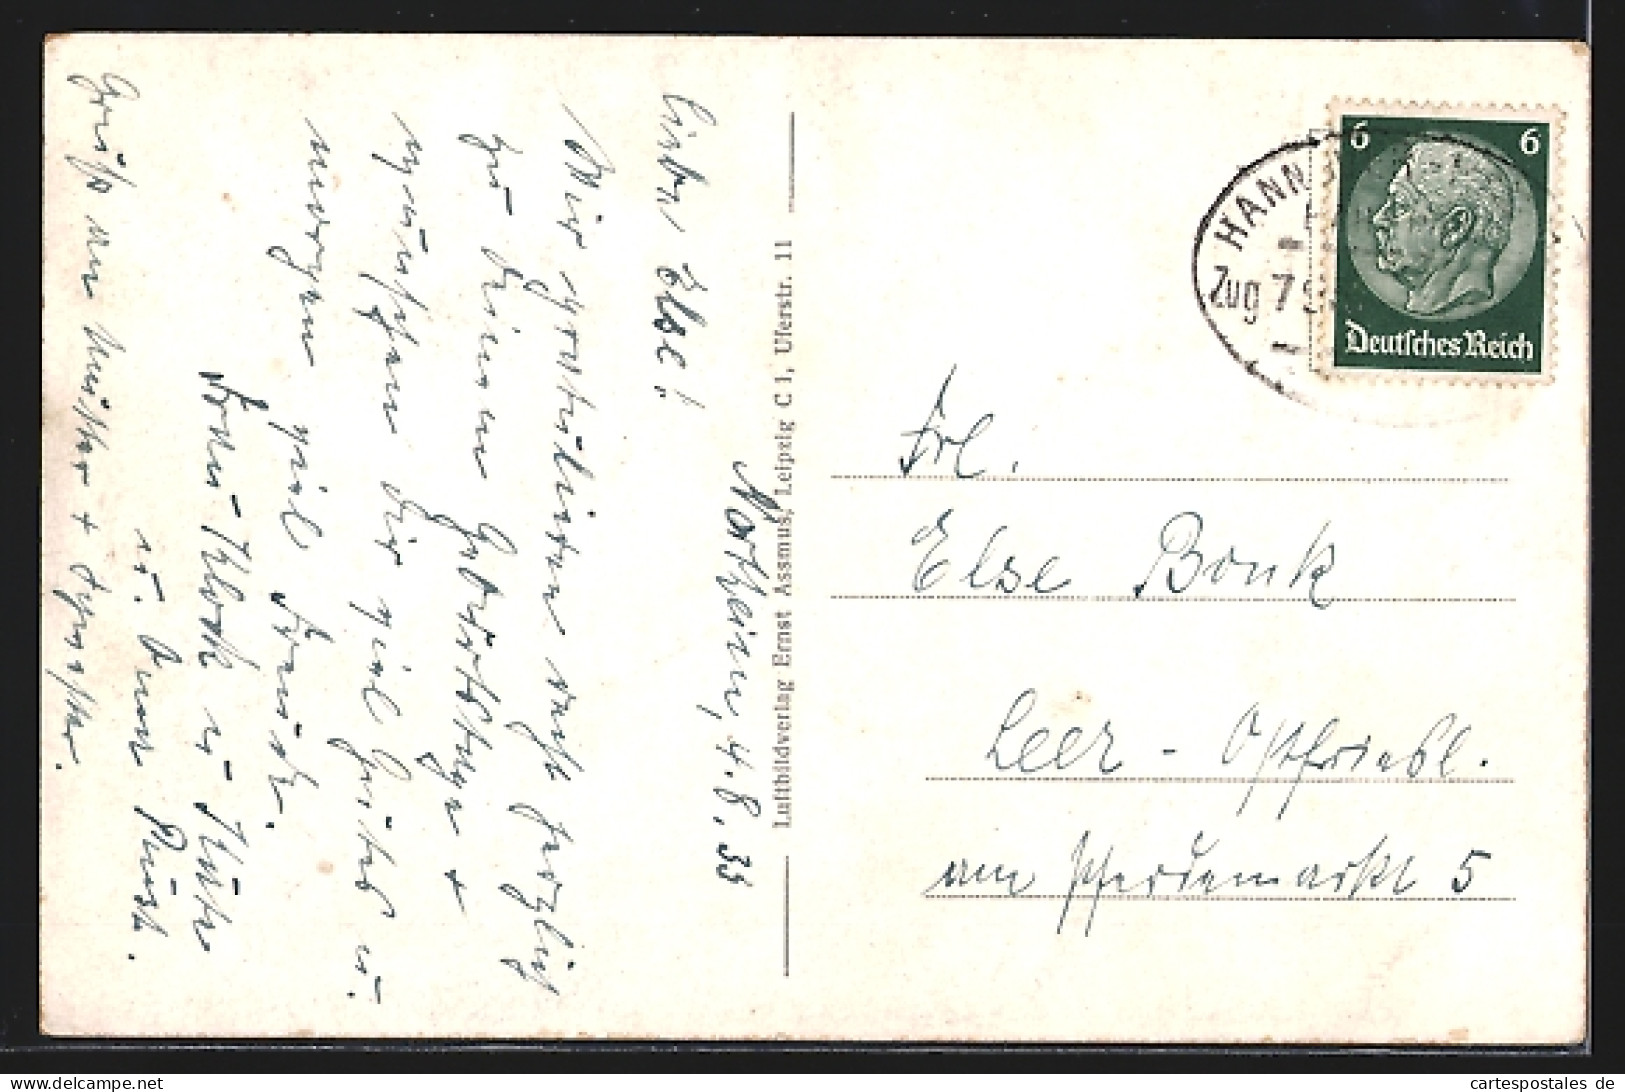 Northeim, 4.8.35
Liebe Else!
Wir gratulieren recht herzlich
zu Deinem Geburtstage +
wünschen Dir viel Gutes u.
morgen viel Freude.
Frau Klock u.
u.
Grüße an Mutter + Schwester.
Luftbildverlag Ernst Assmus, Leipzig C 1, Uferstr. 11
HANN
Zug 7
6 6
Deutsches Reich
Frl.
Else Bonk
Leer - Ostfriesl.
am Pferdemarkt 5
cartespostales.de
cartespostales de